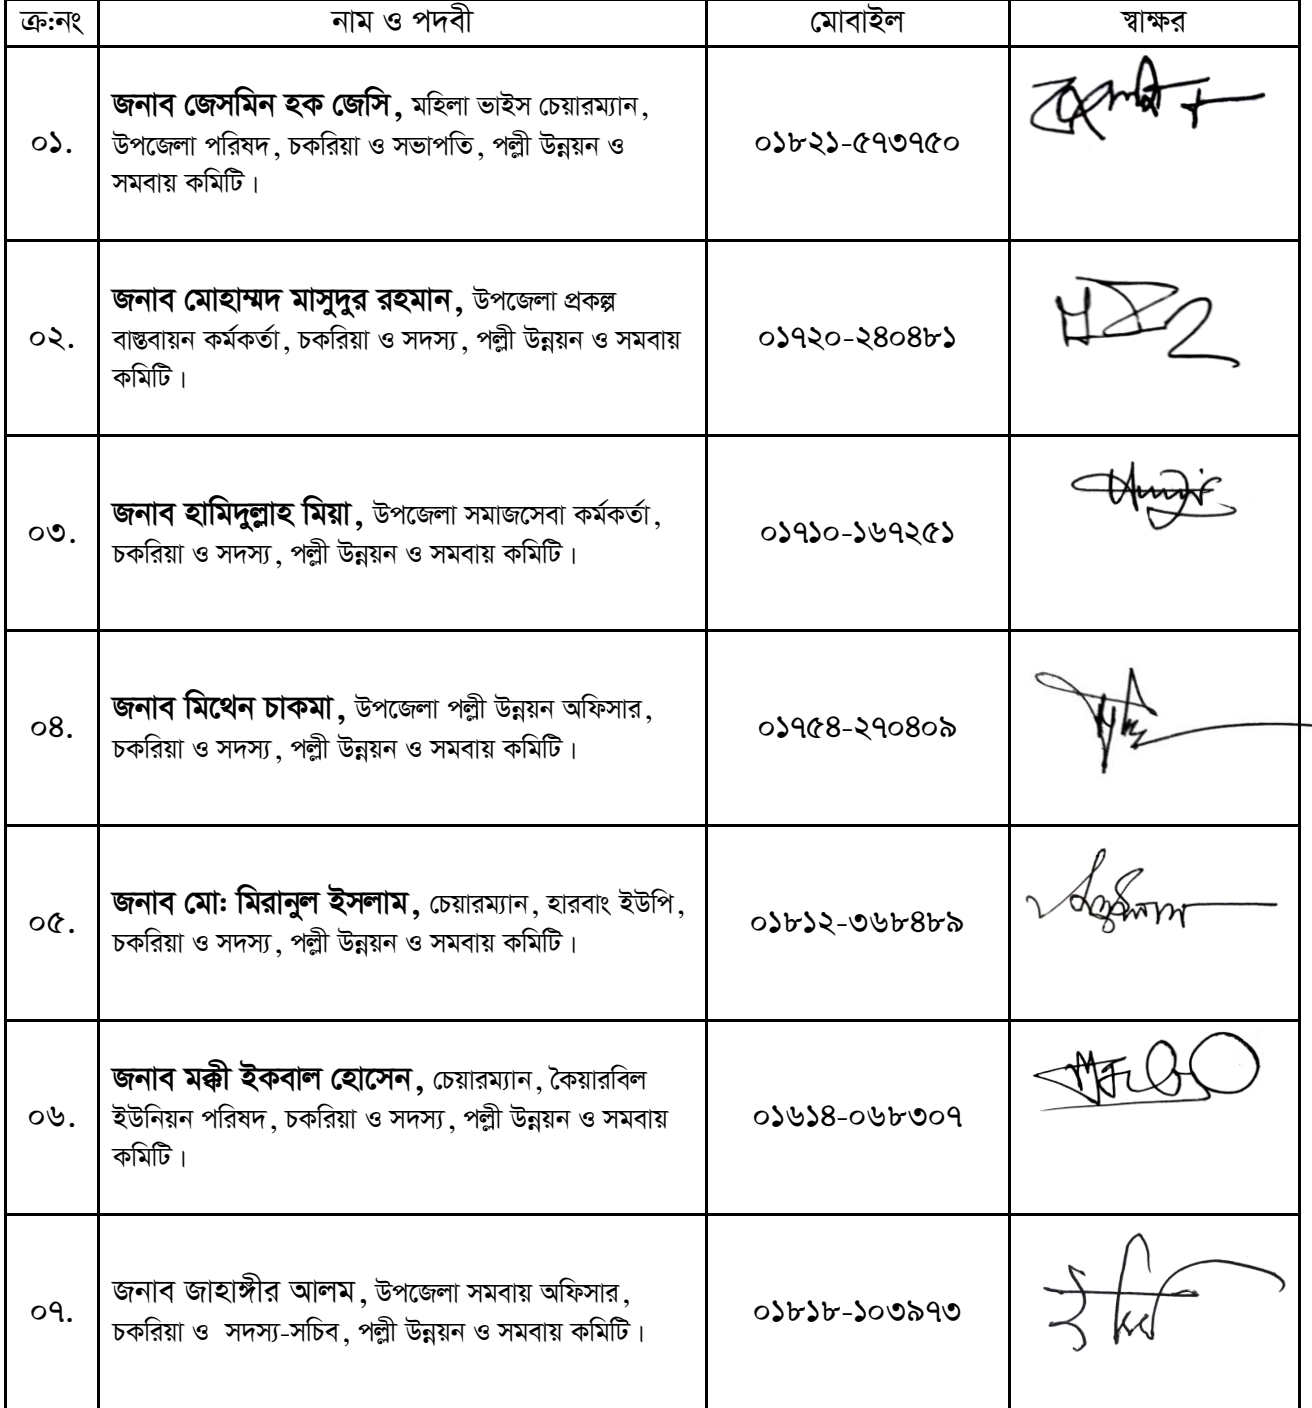 ক্র:নং নাম ও পদবী মোবাইল স্বাক্ষর
০১. জনাব জেসমিন হক জেসি, মহিলা ভাইস চেয়ারম্যান,
উপজেলা পরিষদ, চকরিয়া ও সভাপতি, পল্লী উন্নয়ন ও
সমবায় কমিটি।
০১৮২১-৫৭৩৭৫০
০২. জনাব মোহাম্মদ মাসুদুর রহমান, উপজেলা প্রকল্প
বাস্তবায়ন কর্মকর্তা, চকরিয়া ও সদস্য, পল্লী উন্নয়ন ও সমবায়
কমিটি।
০১৭২০-২৪০৪৮১
০৩. জনাব হামিদুল্লাহ মিয়া, উপজেলা সমাজসেবা কর্মকর্তা,
চকরিয়া ও সদস্য, পল্লী উন্নয়ন ও সমবায় কমিটি।
০১৭১০-১৬৭২৫১
০৪. জনাব মিথেন চাকমা, উপজেলা পল্লী উন্নয়ন অফিসার,
চকরিয়া ও সদস্য, পল্লী উন্নয়ন ও সমবায় কমিটি।
০১৭৫৪-২৭০৪০৯
০৫. জনাব মো: মিরানুল ইসলাম, চেয়ারম্যান, হারবাং ইউপি,
চকরিয়া ও সদস্য, পল্লী উন্নয়ন ও সমবায় কমিটি।
০১৮১২-৩৬৮৪৮৯
০৬. জনাব মক্কী ইকবাল হোসেন, চেয়ারম্যান, কৈয়ারবিল
ইউনিয়ন পরিষদ, চকরিয়া ও সদস্য, পল্লী উন্নয়ন ও সমবায়
কমিটি।
০১৬১৪-০৬৮৩০৭
০৭. জনাব জাহাঙ্গীর আলম, উপজেলা সমবায় অফিসার,
চকরিয়া ও সদস্য-সচিব, পল্লী উন্নয়ন ও সমবায় কমিটি।
০১৮১৮-১০৩৯৭৩